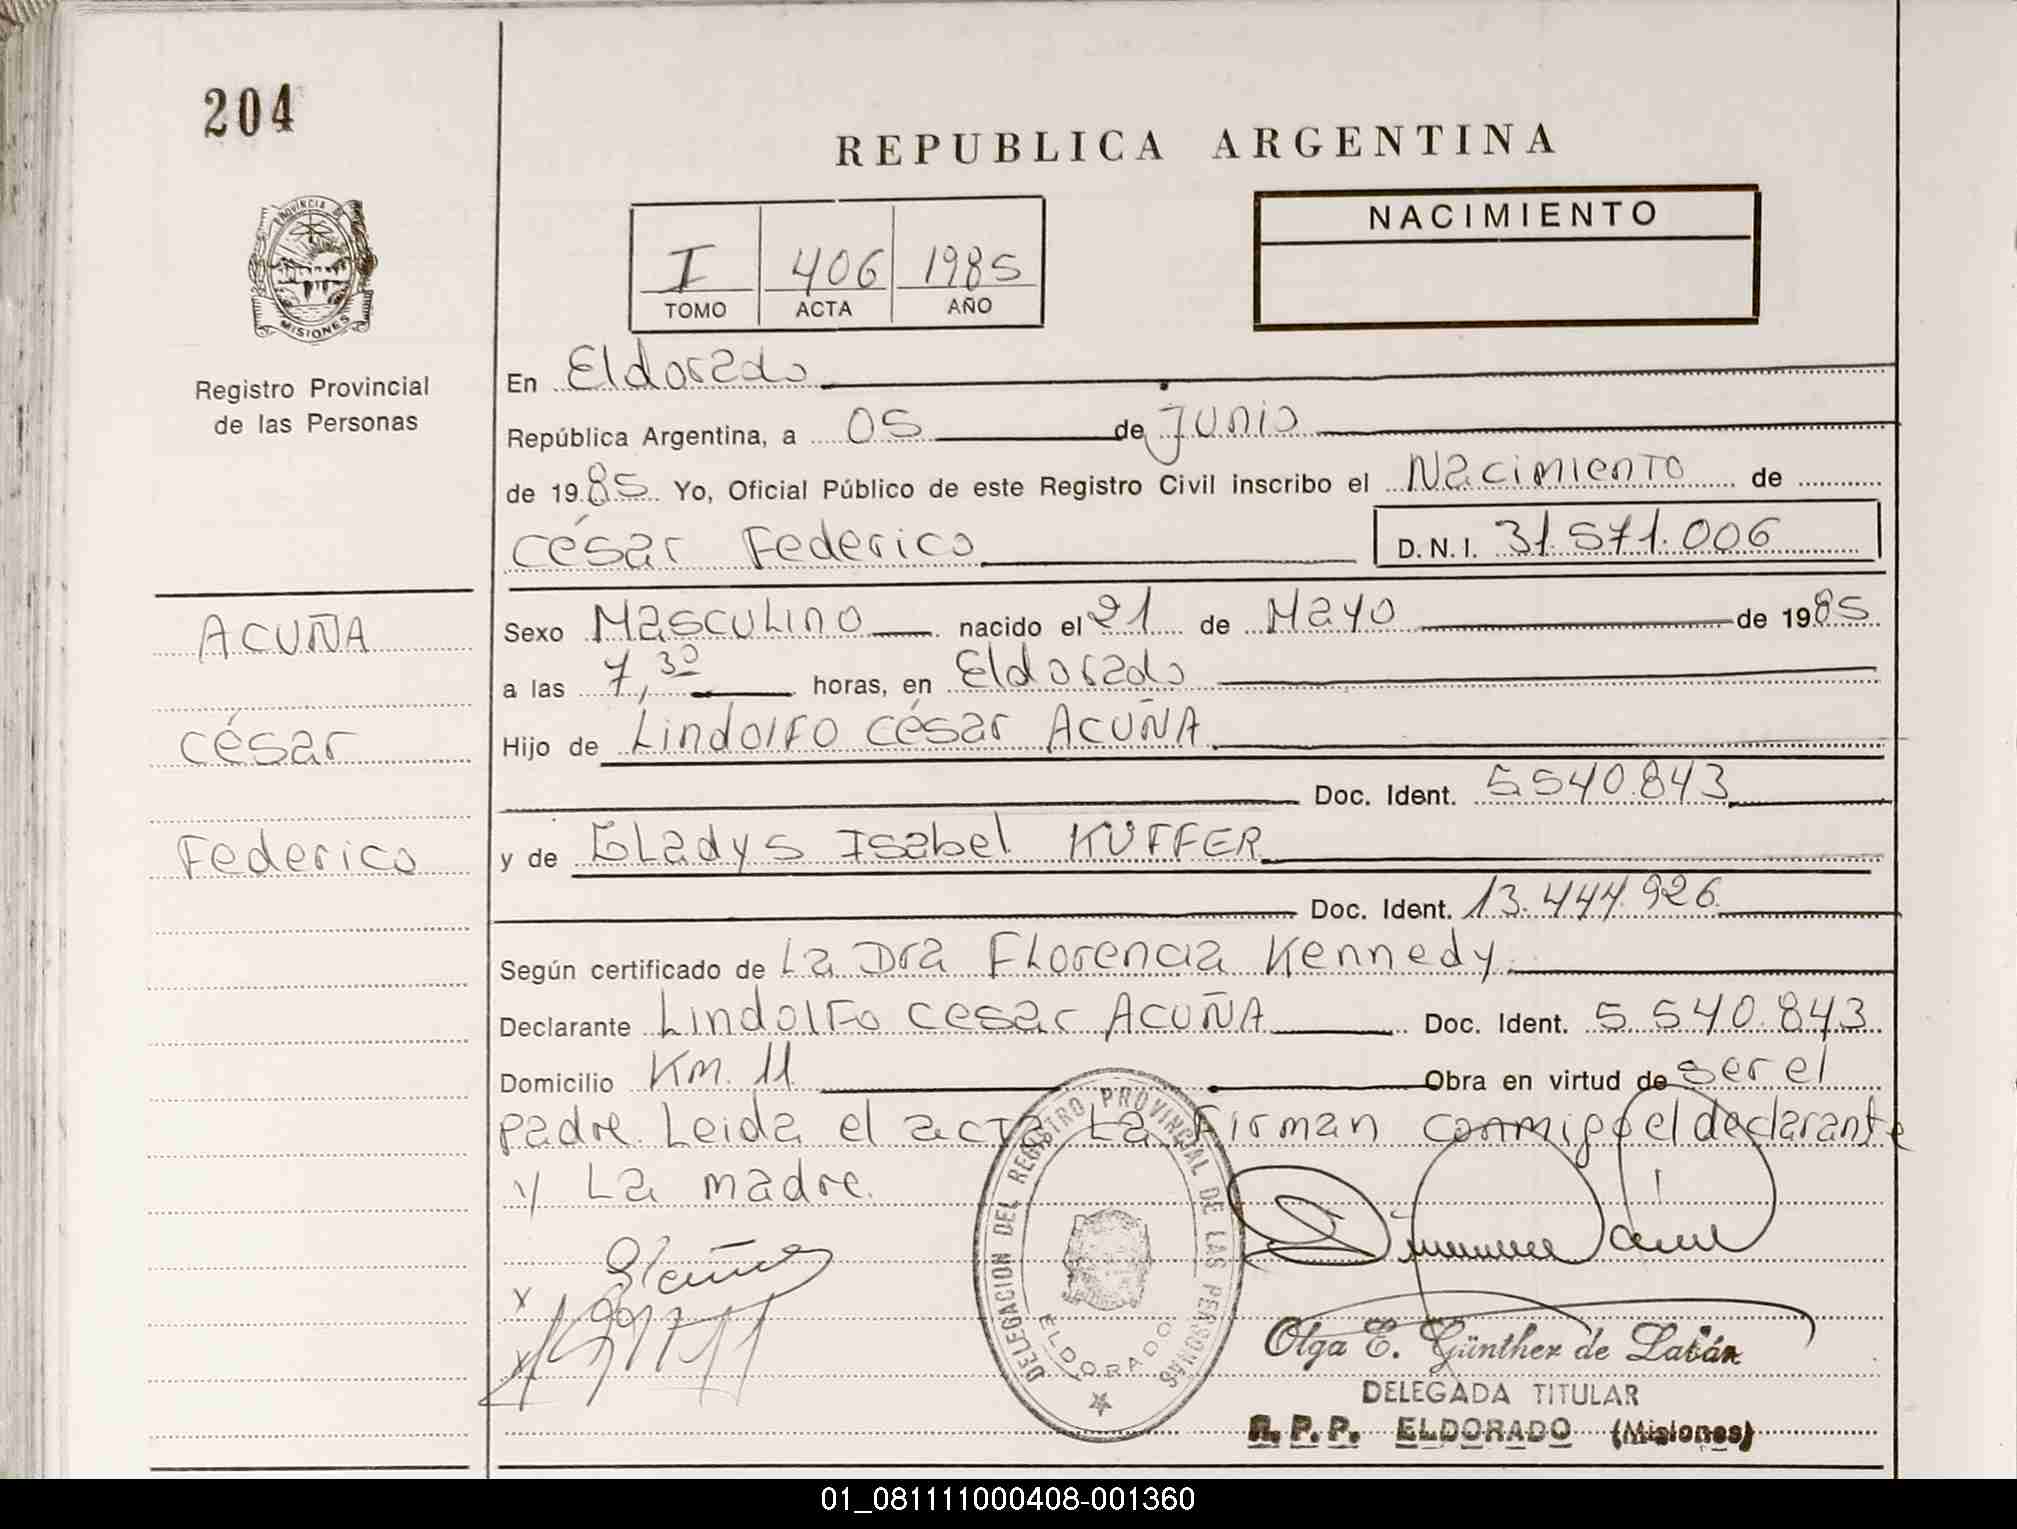 204
REPUBLICA ARGENTINA
PROVINCIA DE
MISIONES
Registro Provincial
de las Personas
I 406 1985
TOMO ACTA AÑO
NACIMIENTO
En Eldorado
República Argentina, a 05 de Junio
de 1985 Yo, Oficial Público de este Registro Civil inscribo el Nacimiento de
César Federico D.N.I. 31.571.006
ACUÑA
César
Federico
Sexo Masculino nacido el 21 de Mayo de 1985
a las 7,30 horas, en Eldorado
Hijo de Lindolfo César ACUÑA
Doc. Ident. 5.540.843
y de Gladys Isabel KUFFER
Doc. Ident. 13.444.926
Según certificado de La Dra Florencia Kennedy
Declarante Lindolfo Cesar ACUÑA Doc. Ident. 5.540.843
Domicilio Km. 11 Obra en virtud de ser el
padre. Leida el acta La firman conmigo el declarante
y La madre.
DELEGACION DEL REGISTRO PROVINCIAL DE LAS PERSONAS
ELDORADO
x
x
Olga E. Günther de Labán
DELEGADA TITULAR
R. P. P. ELDORADO (Misiones)
01_081111000408-001360